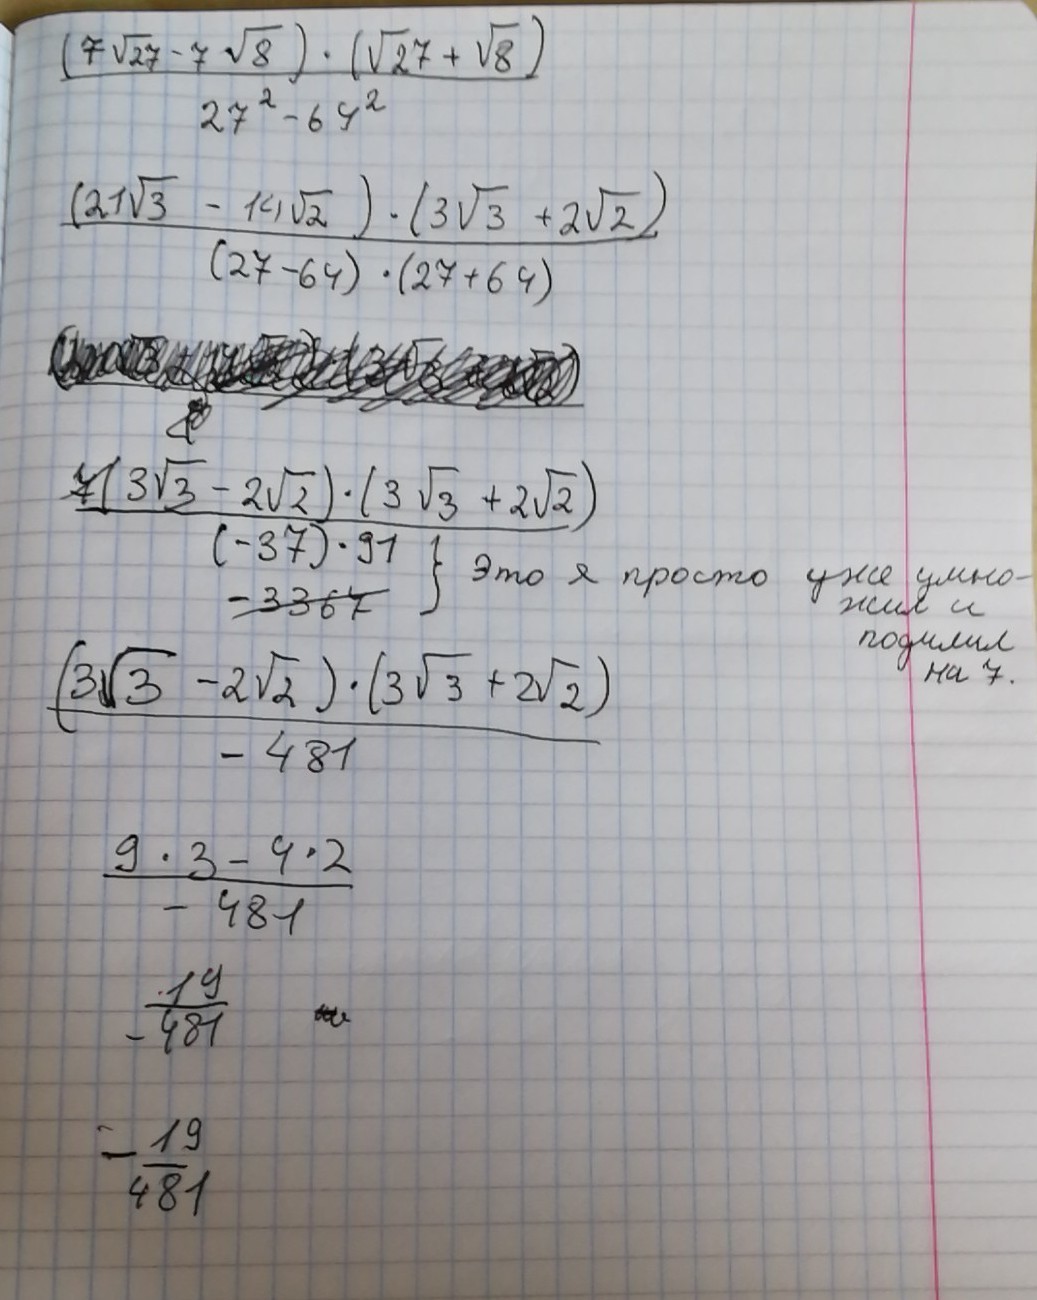 (7√27 - 7√8) · (√27 + √8)
27² - 64²
(21√3 - 14√2) · (3√3 + 2√2)
(27 - 64) · (27 + 64)
7(3√3 - 2√2) · (3√3 + 2√2)
(-37) · 91
-3367
} Это я просто уже умно-
жил и
поделил
на 7.
(3√3 - 2√2) · (3√3 + 2√2)
- 481
9 · 3 - 4 · 2
- 481
19
- 481
- 19
481